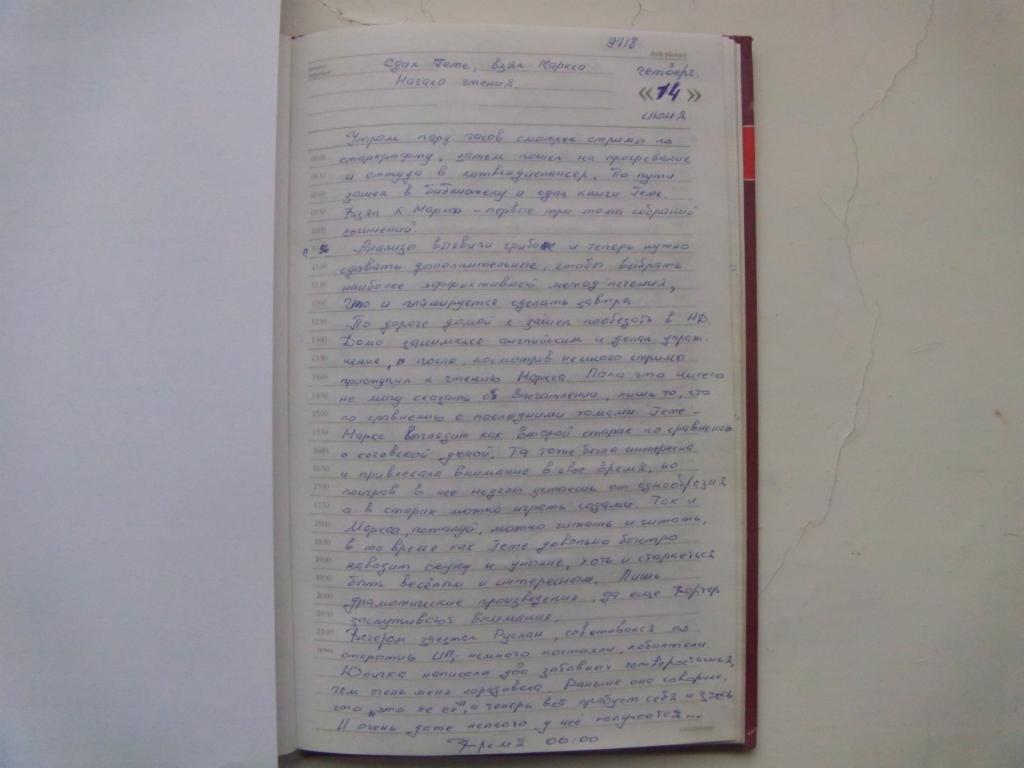 9718
Сдал Гете, взял Маркса
Начало чтения.
четверг.
«14»
июня
Утром пару часов смотрел стримы по
старкрафту, затем пошел на прогревание
и оттуда в кожвендиспансер. По пути
зашел в библиотеку и сдал книги Гете.
Взял К Маркса - первые три тома собраний
сочинений.
Анализы выявили грибок и теперь нужно
сдавать дополнительные, чтобы выбрать
наиболее эффективной метод лечения,
что и планируется сделать завтра.
По дороге домой я зашел пообедать в НД.
Дома занимался английским и делал упраж-
нение, а после, посмотрив немного стримы
приступил к чтению Маркса Пока что ничего
не могу сказать об впечатлении, лишь то, что
по сравнению с последними томами Гете -
Маркс выглядит как второй старик по сравнению
с дюной. Та тоже была интересна
и привлекала внимание в свое время, но
поиграв в нее неделю устаешь от однообразия
а в старик можно играть годами. Так и
Маркса, пожалуй, можно читать и читать,
в то время как Гете довольно быстро
наводит скуку и уныние, хоть и старается
быть весёлым и интересным. Лишь
драматические произведения, да еще
заслуживают внимания.
Вечером заезжал Руслан, советовался по
открытию ИП, немного постояли, поболтали.
Юличка написала два забавных четверостишья,
чем очень меня порадовала. Раньше она говорила,
что "это не её", а теперь всё пробует себя и здесь
И очень даже неплохо у неё получается...
Время 00:00